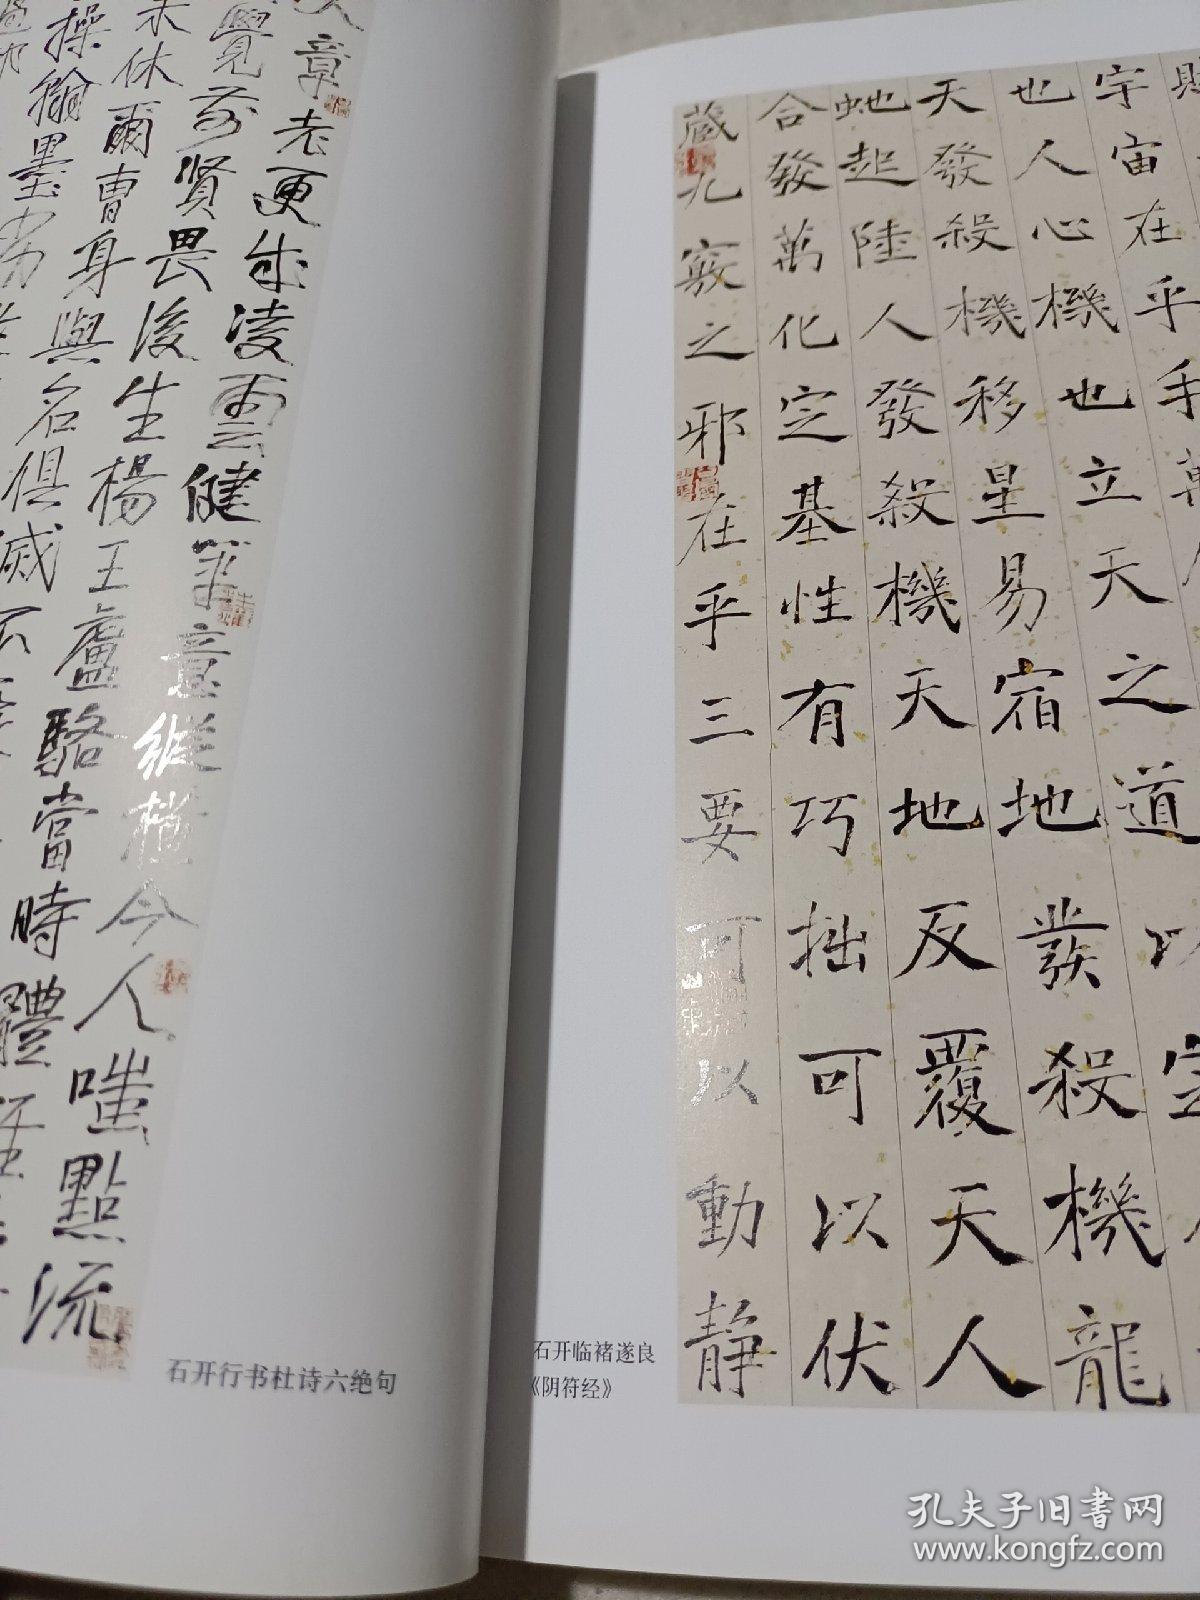 章老更成凌雲健筆意縱橫今人嗤點流
覺前賢畏後生楊王盧駱當時體
未休爾曹身與名俱滅不
操翰墨劣
石开行书杜诗六绝句
宇宙在乎手萬
也人心機也立天之道以定
天發殺機移星易宿地發殺機龍
虵起陸人發殺機天地反覆天人
合發萬化定基性有巧拙可以伏
藏九竅之邪在乎三要可以動靜
石开临褚遂良
《阴符经》
孔夫子旧书网
www.kongfz.com